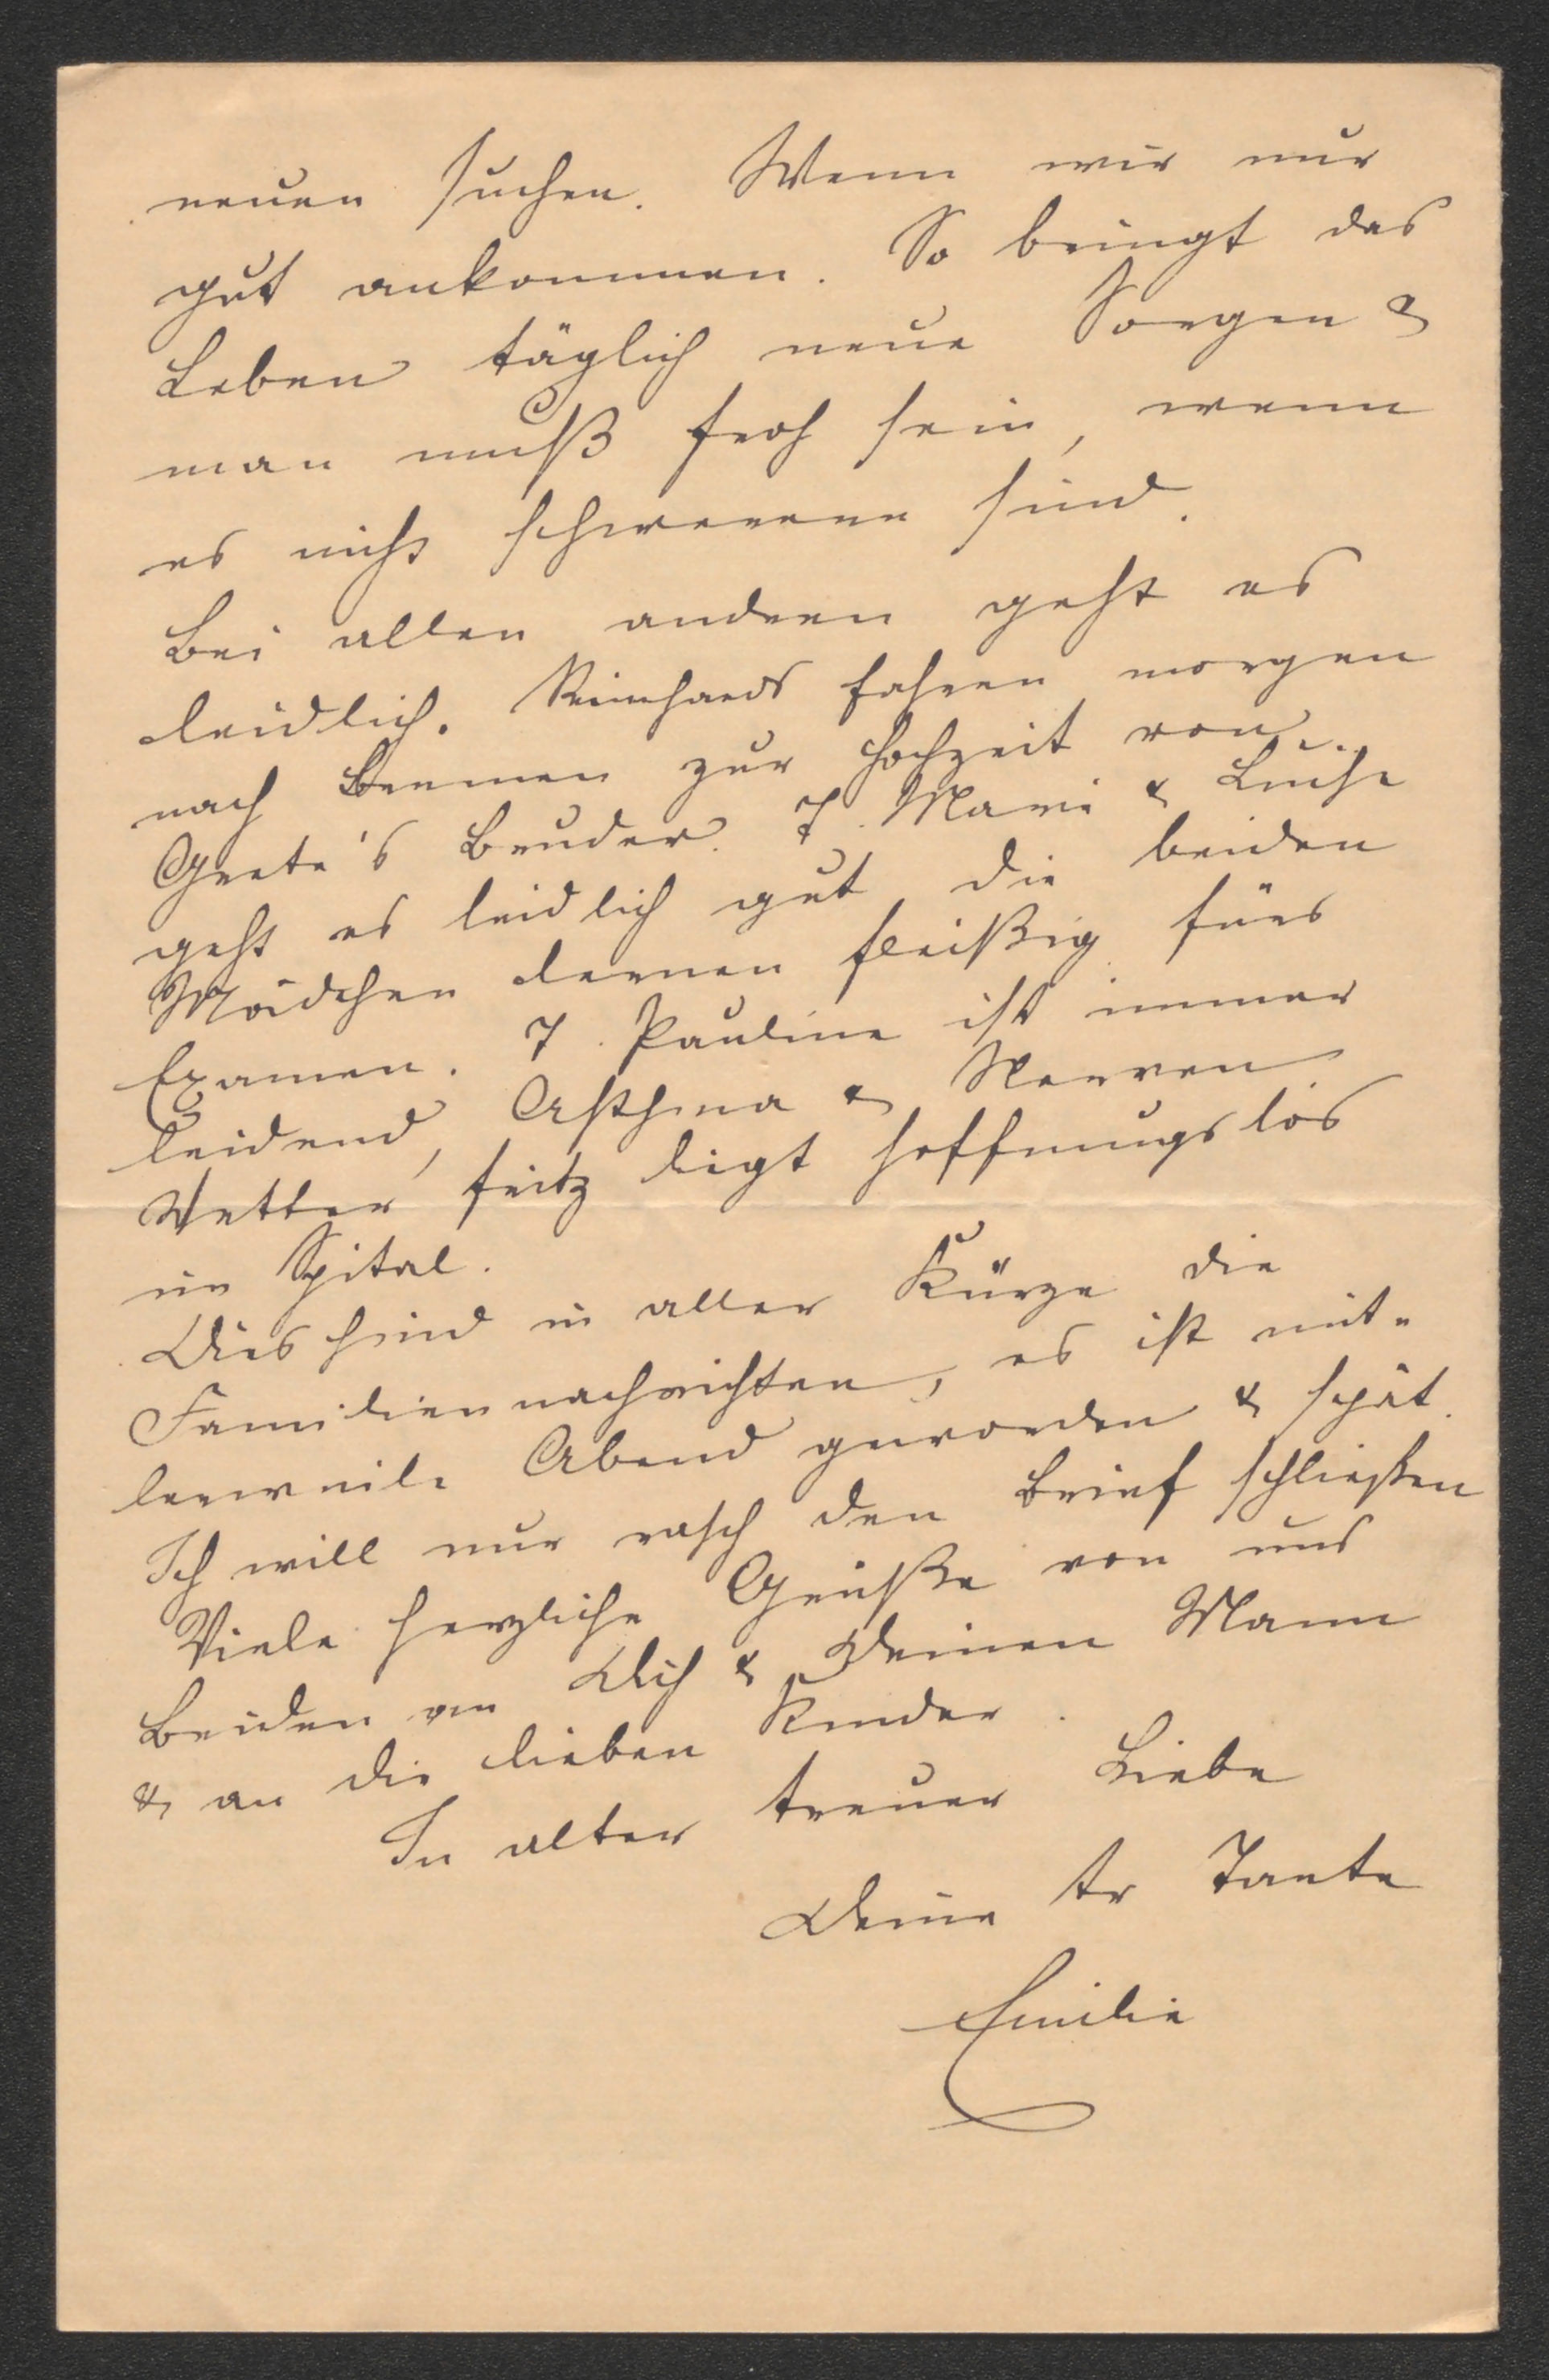 neuen suchen. Wenn wir nur
gut ankommen. So bringt das
Leben täglich neue Sorgen &
man muß froh sein, wenn
es nicht schwerere sind.
Bei allen andren geht es
leidlich. Reinhards fahren morgen
nach Bremen zur Hochzeit von
Grete's Bruder. T. Marie & Luise
geht es leidlich gut, die beiden
Mädchen lernen fleißig fürs
Examen. T. Pauline ist immer
leidend, Asthma & Nerven.
Vetter Fritz liegt hoffnungslos
im Spital.
Dies sind in aller Kürze die
Familiennachrichten, es ist mit-
lerweile Abend geworden & spät.
Ich will nur rasch den Brief schließen
Viele herzliche Grüße von uns
Beiden an Dich & Deinen Mann
& an die lieben Kinder.
In alter treuer Liebe
Deine tr Tante
Emilie